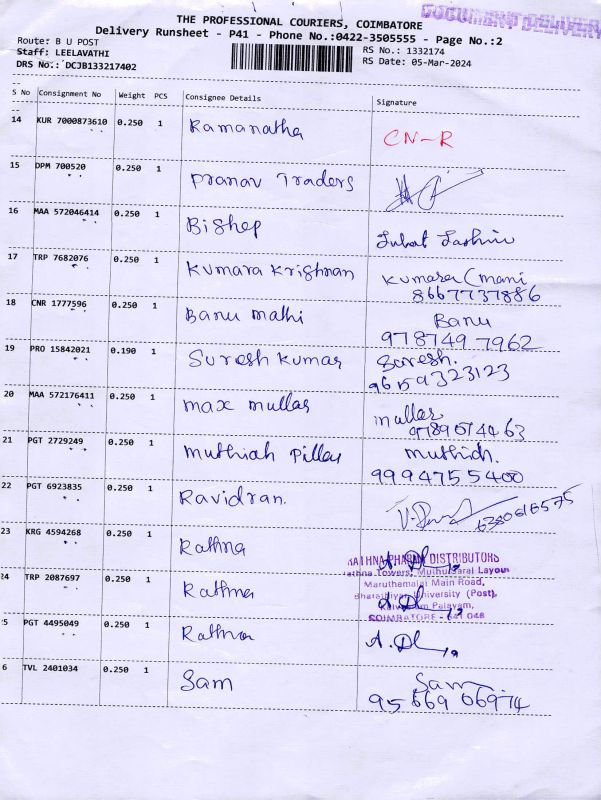 DOCUMENT DELIVERY
THE PROFESSIONAL COURIERS, COIMBATORE
Delivery Runsheet - P41 - Phone No.:0422-3505555 - Page No.:2
Route: B U POST RS No.: 1332174
Staff: LEELAVATHI RS Date: 05-Mar-2024
DRS No.: DCJB133217402
S No Consignment No Weight PCS Consignee Details Signature
14 KUR 7000873610 0.250 1 Ramanatha CN-R
15 DPM 700520 0.250 1 Pranav Traders
16 MAA 572046414 0.250 1 Bishep
17 TRP 7682076 0.250 1 Kumara Krishnan Kumara (mani
8667737886
18 CNR 1777596 0.250 1 Banu mathi Banu
978749 7962
19 PRO 15842021 0.190 1 Suresh Kumar Suresh.
96159323123
20 MAA 572176411 0.250 1 max mullar mullar
21 PGT 2729249 0.250 1 Muthiah Pillai Muthiah.
9994755400
22 PGT 6923835 0.250 1 Ravidran.
6380616575
23 KRG 4594268 0.250 1 Rathna
RATHNA PHARM DISTRIBUTORS
athna Towers, Muthu Saral Layou
24 TRP 2087697 0.250 1 Rathna
Maruthamalai Main Road,
Bharathiyar University (Post),
Palayam,
COIMBATORE - 641 046
25 PGT 4495049 0.250 1 Rathna
6 TVL 2401034 0.250 1 Sam Sam
95669 06974